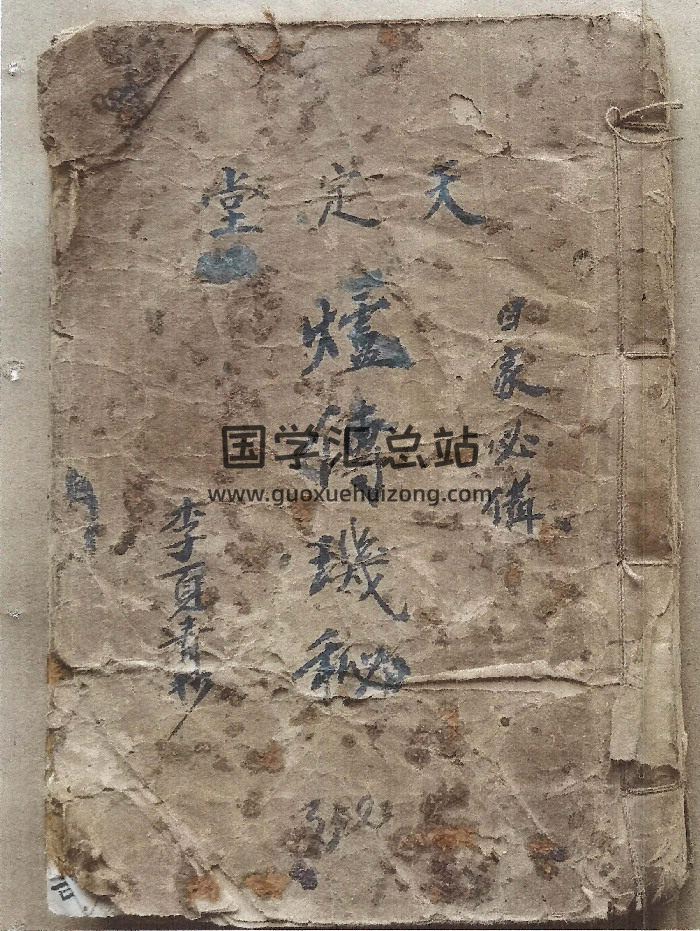 天定堂
日家必備
爐傳璣秘
李夏青抄
国学汇总站
www.guoxuehuizong.com